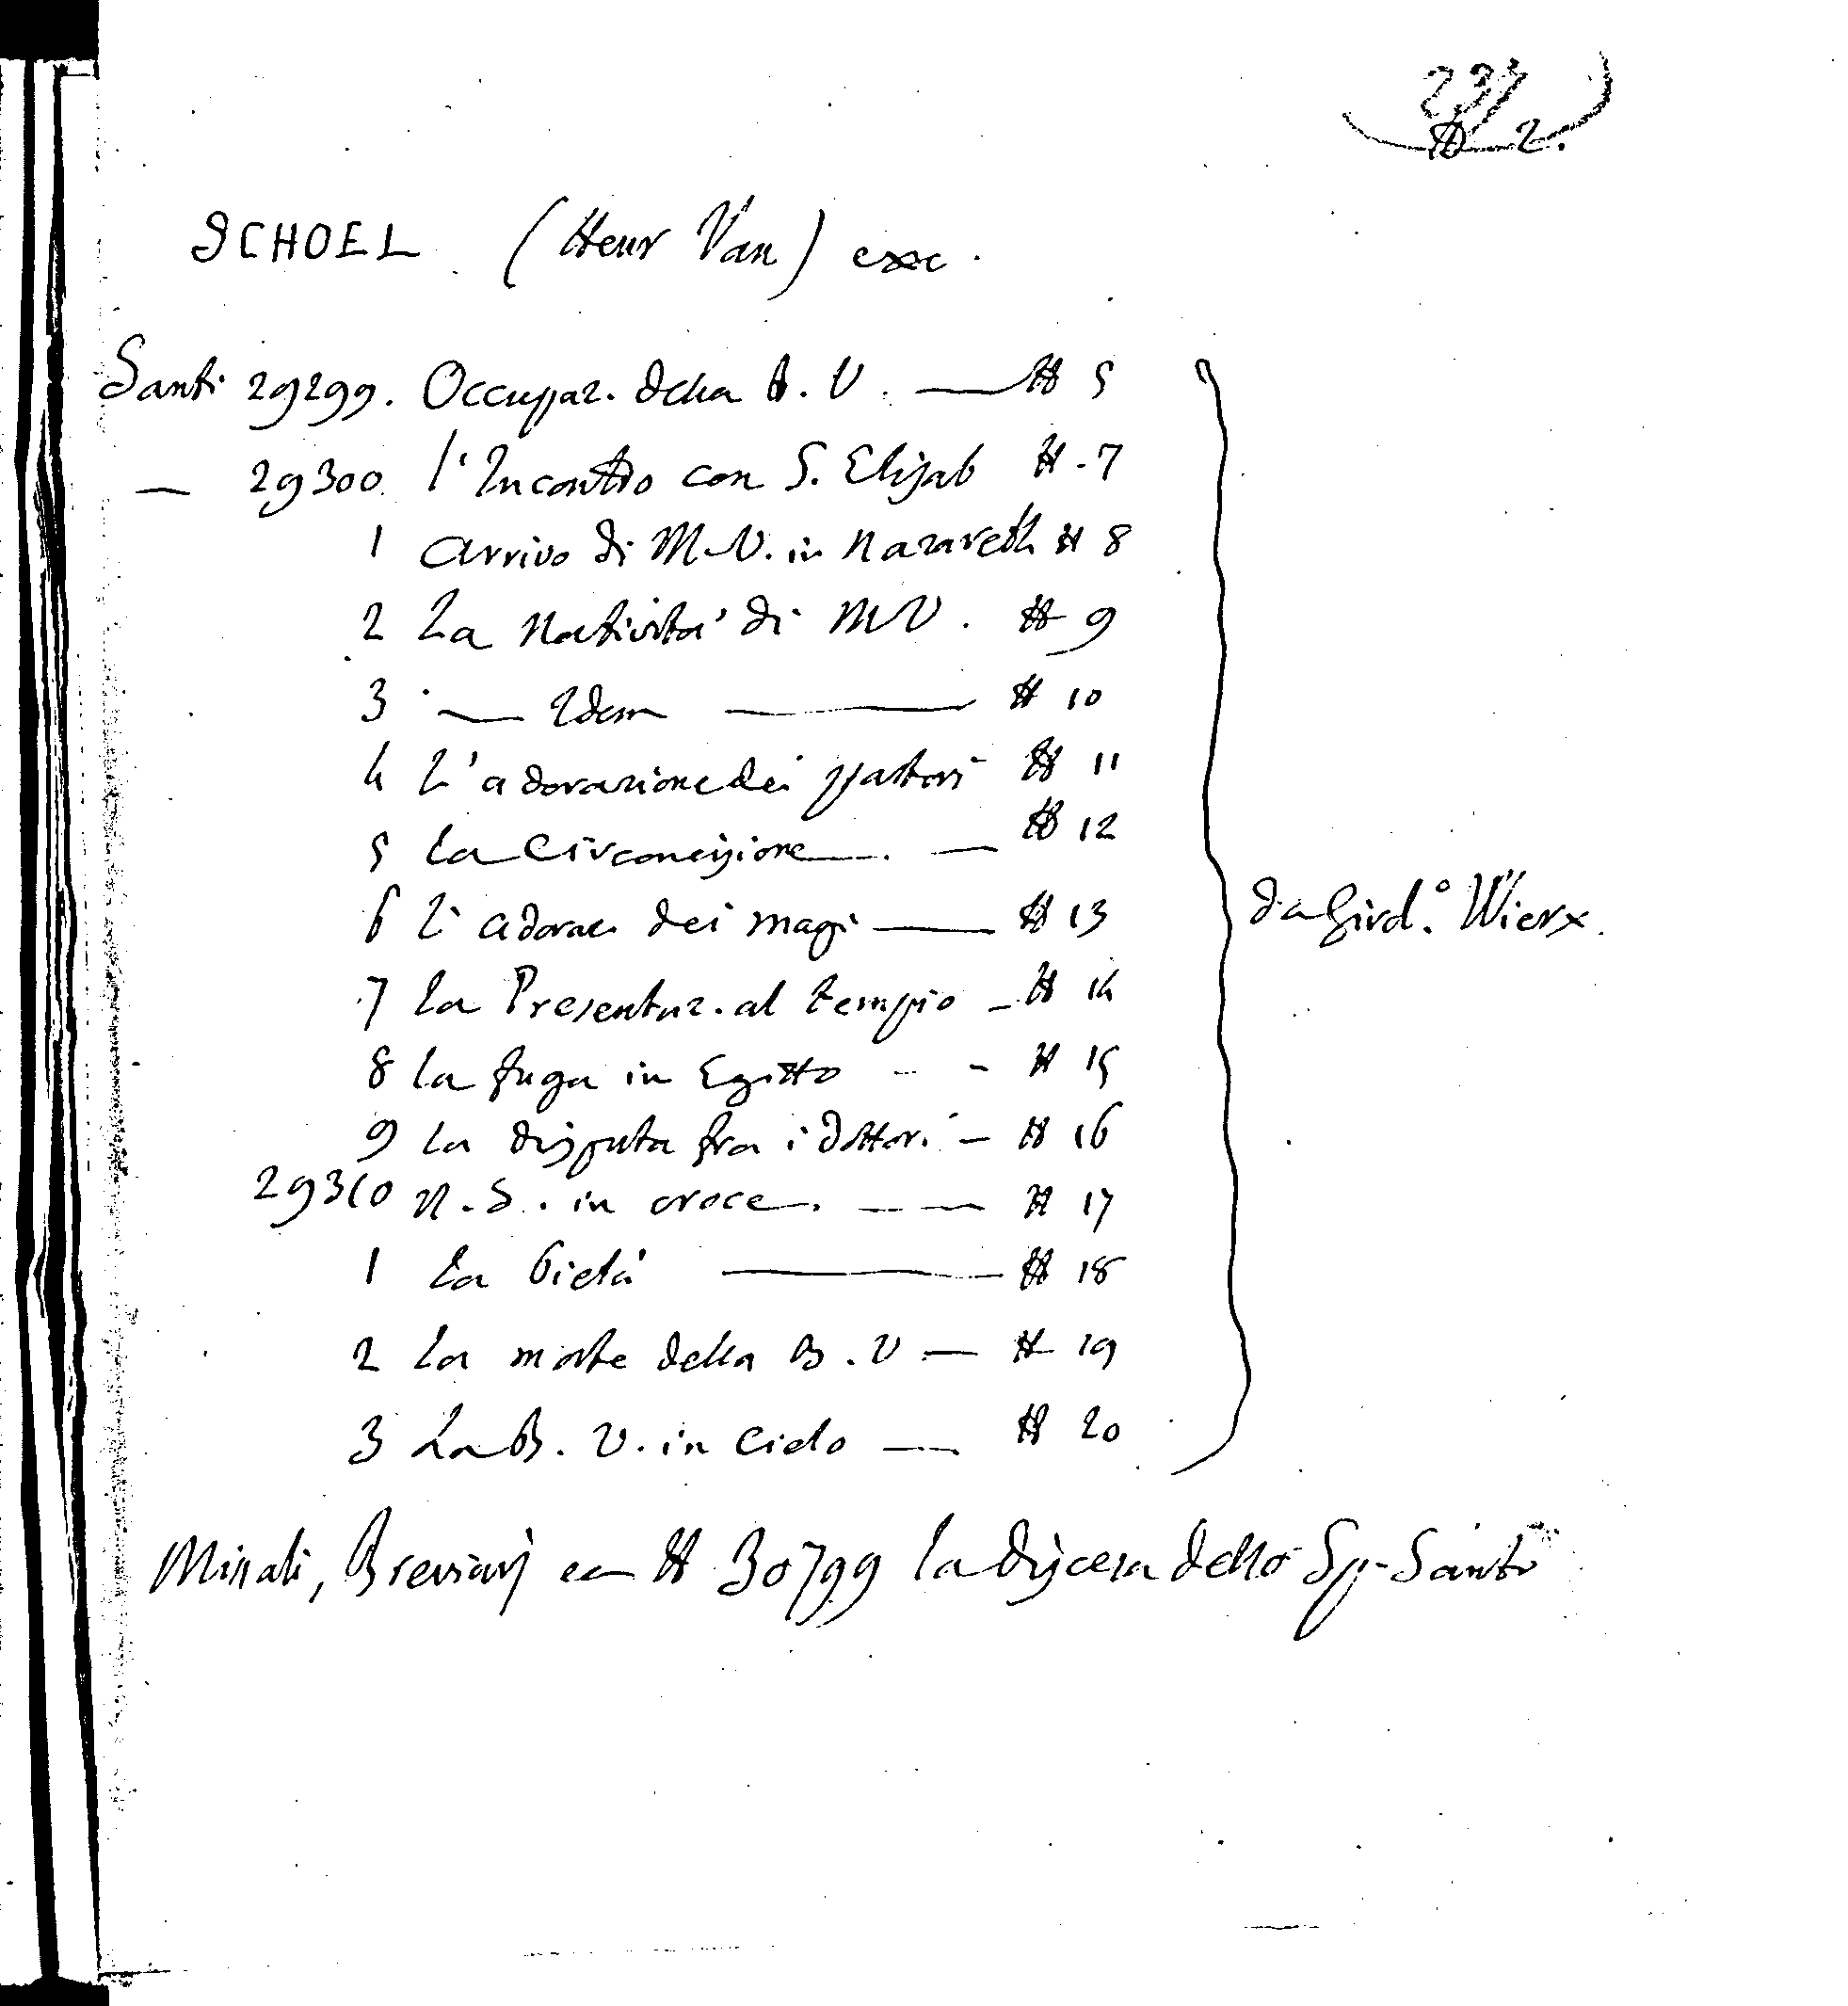 237
# 2.
SCHOEL (Henr Van) exc.
Santi 29299. Occupaz. della b. V. — # 5
— 29300. l'Incontro con S. Elisab # - 7
1 Arrivo di M.V. in Nazareth # 8
2 La Natività di MV. # 9
3 — Idem — # 10
4 L'adorazione dei pastori # 11
5 la Circoncisione. — # 12
6 L'adoraz dei magi — # 13
7 la Presentaz. al tempio - # 14
8 la fuga in Egitto - - # 15
9 la disputa fra i dottori - # 16
29310 N.S. in croce. — — # 17
1 la Pietà — # 18
2 la morte della B.V — # 19
3 La B. V. in Cielo — # 20
da Girol.º Wierx.
Missali, Breviarj ec # 30799 la discesa dello Sp. Santo